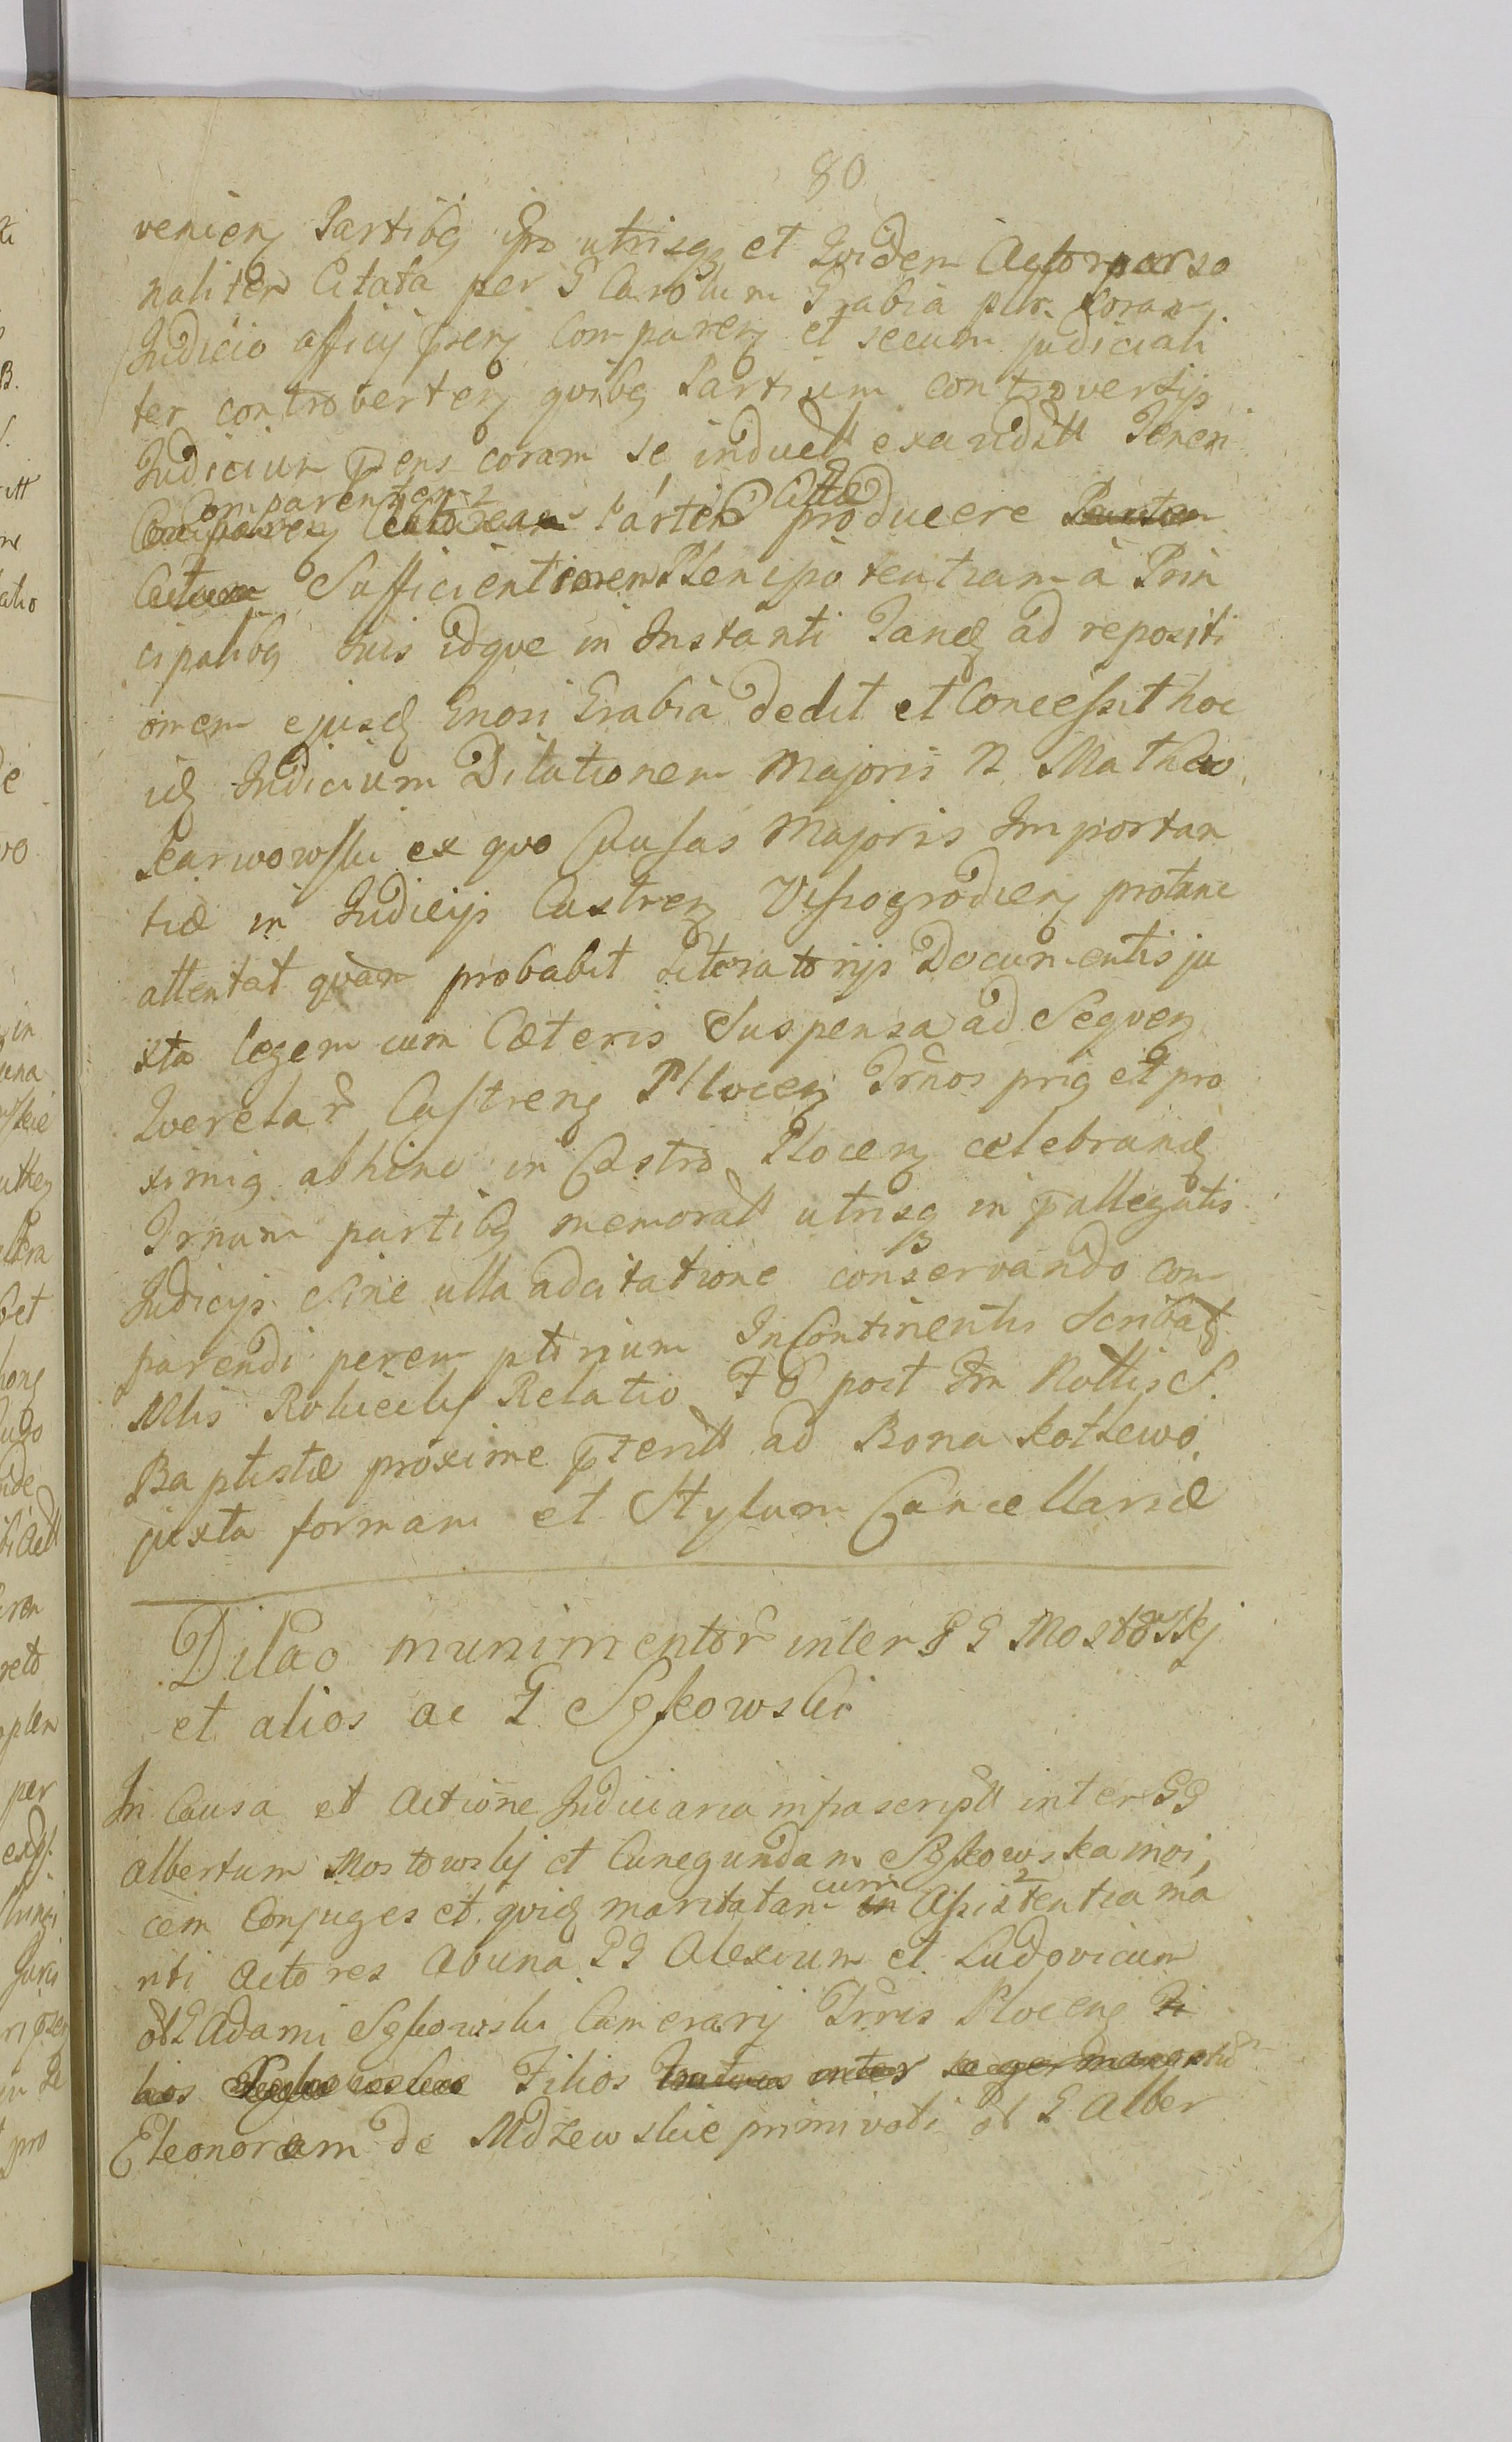 80
venienꝫ Partibꝫ ipis utrisqꝫ et quidem Actor perso
naliter Citata per G Carolum Grabia pltr. coram
Judicio officij pnenꝫ Comparenꝫ et secum judiciali
ter controvertenꝫ quibꝫ Partium controversijs
Judicium pns coram se indutt exauditt
Comparentem Partem Citta producere
Sufficientiorem Plenipotentiam à Prin
cipalibꝫ suis idque in Instanti Tandꝫ ad repositi
onem ejusdꝫ Gnosi Grabia dedit et Concessit hoc
idꝫ Judicium Dilationem Majoris N Matheo
Karwowski ex quo Causas Majoris Importan
tiæ in Judicijs Castrenꝫ Vissogrodienꝫ protunc
attentat quàm probabit Literatorijs Documentis ju
xta legem cum Cæteris Suspensa ad Sequenꝫ
Querelar̃ Castrenꝫ Plocenꝫ Trnos prig et pro
ximig abhinc in Castro Plocenꝫ celebrandꝫ
Trnum partibꝫ memoratt utrisqꝫ in pallegatis
Judicijs Sine ulla adcitatione conservando com
parendi peremptorium InContinentis Scribat
Mlis Rokicky Relatio F 6 post Fm Nottis S.
Baptistæ proxime pteritt ad Bona Kotlewo
juxta formam et Stylum Cancellariæ
Dilao munimentor̃ inter G G Mostowskj
et alios ac G Sgskowski
In Causa et Actione Judiciaria infrascriptt inter GG
Albertum Mostowskj et Cunegundam Sgskowska invi,
cem Conjuges et quidꝫ maritatam cum Assistentia ma
riti Actores Abuna GG Alexium et Ludovicum
olt G Adami Sgskowski Camerarij Trris Plocenꝫ
Filios
Eleonoram de Mdzewskie primivoti olt G Alber